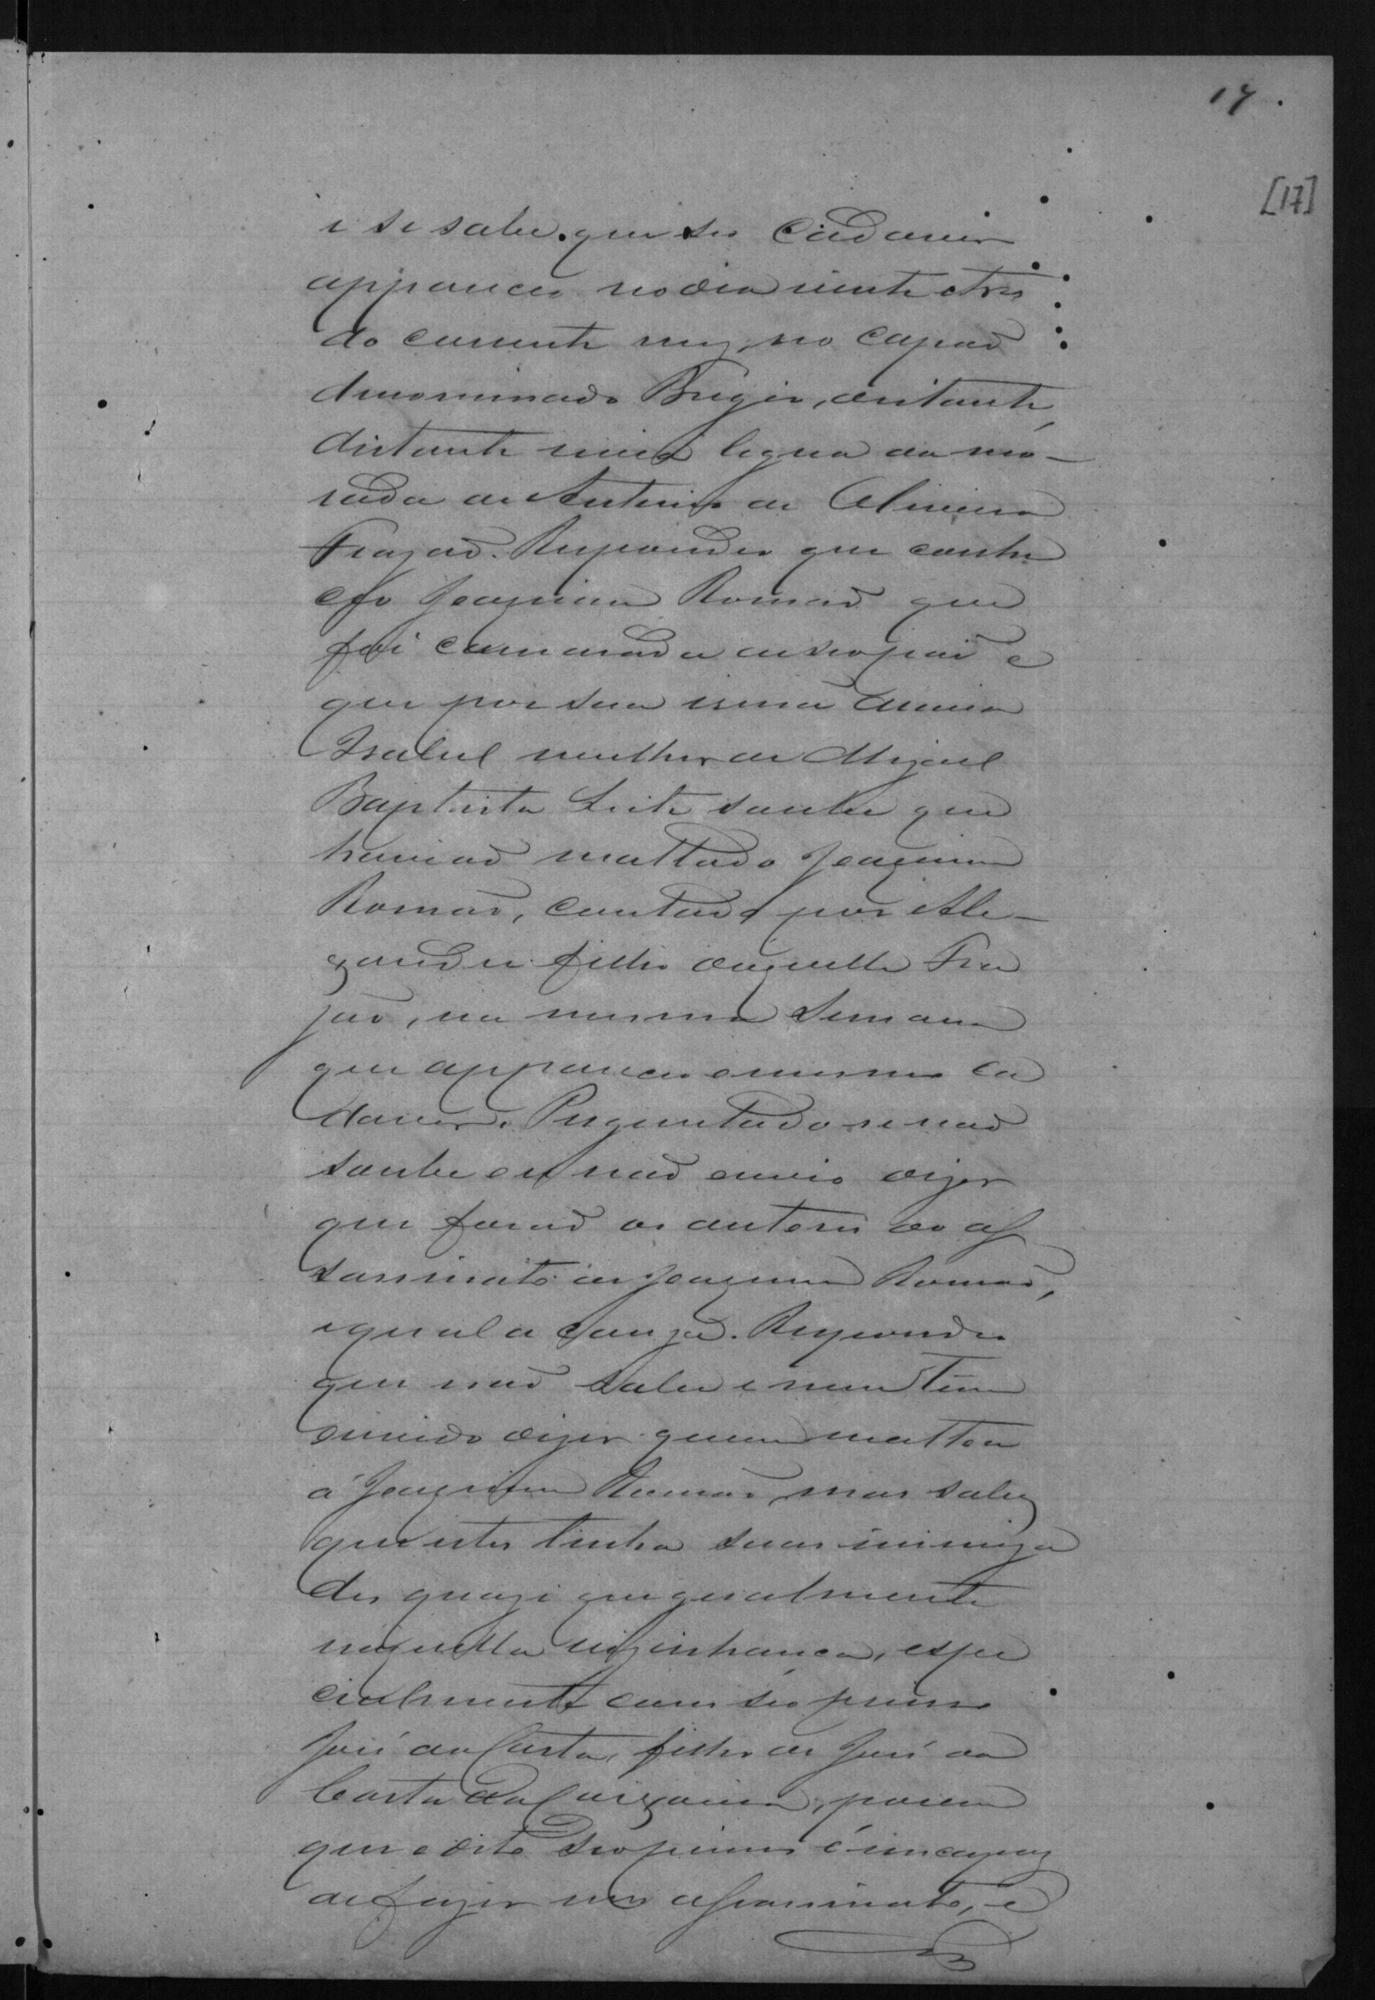 17.
[17]
e se sabe que seo cadaver
appareceo no dia vinte e tres
do corrente mez, no capaõ
denominado Bugio, distante,
distante meia legua da mo-
rada de Antonio de Oliveira
Frazaõ. Respondeo que conhe
ceo Joaquim Romaõ que
foi camarada de seo pai e
que por sua irmã Anna
Isabel mulher de Miguel
Baptista Leite soube que
haviaõ mattado Joaquim
Romaõ, contado por Ale-
xandre filho daquelle Fra
zaõ, na mesma semana
que appareceo o mesmo ca
daver. Perguntado se naõ
soube ou naõ ouvio dizer
que foraõ os autores do as
sassinato de Joaquim Romaõ,
e qual a causa. Respondeo
que naõ sabe e nem tem
ouvido dizer quem mattou
á Joaquim Romaõ, mas sabe
que este tinha suas inimiza
des quazi que geralmente
naquella vizinhança, espe
cialmente com seo primo
José da Costa, filho de José da
Costa da, porem
que o dito seo primo é incapaz
de fazer um assassinato, e